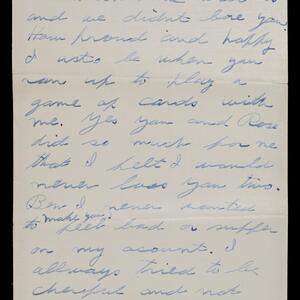 and we didnt bore you.
How proud and happy
I usto be when you
ran up to play a
game of cards with
me. Yes you and Rose
did so much for me
that I felt I would
never lose you two.
Ben I never wanted
to make you feel bad or suffer
on my acount. I
allways tried to be
cheerful and not